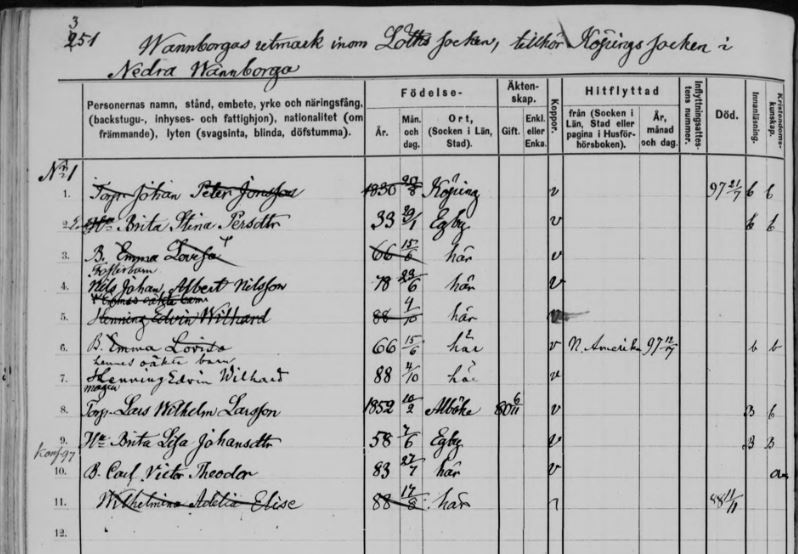 3
251 Wannborgas utmark inom Löths socken, tillhör Köpings socken i
Nedra Wannborga
Personernas namn, stånd, embete, yrke och näringsfång, (backstugu-, inhyses- och fattighjon), nationalitet (om främmande), lyten (svagsinta, blinda, döfstumma).
Födelse-
År.
Mån. och dag.
Ort, (Socken i Län, Stad).
Äktenskap.
Gift.
Enkl. eller Enka.
Koppor.
Hitflyttad
från (Socken i Län, Stad eller pagina i Husförhörsboken).
År, månad och dag.
Inflyttningsattestens nummer.
Död.
Innanläsning.
Kristendomskunskap.
№ 1
1. Torp. Johan Peter Jonsson 1830 20/8 Köping v 97 21/7 b b
2. Hu Brita Stina Persdtr 33 29/1 Egby v b b
3. B. Emma Lovisa 66 15/6 här v
Fosterbarn
4. Nils Johan Albert Nilsson 78 23/6 här v
Emmas oäkta barn
5. Henning Edvin Wilhard 88 4/10 här
6. B. Emma Lovisa 66 15/6 här v N. Amerika 97 12/7 b b
hennes oäkta barn
7. Henning Edvin Wilhard 88 4/10 här v
mågen
8. Torp. Lars Wilhelm Larsson 1852 10/2 Alböke 80 6/11 v B b
9. Hu Brita Lisa Johansdtr 58 7/6 Egby v B B
Konf. 97
10. B. Carl Victor Theodor 83 27/7 här v a
11. Wilhelmina Adelia Elise 88 17/8 här 88 11/11
12.